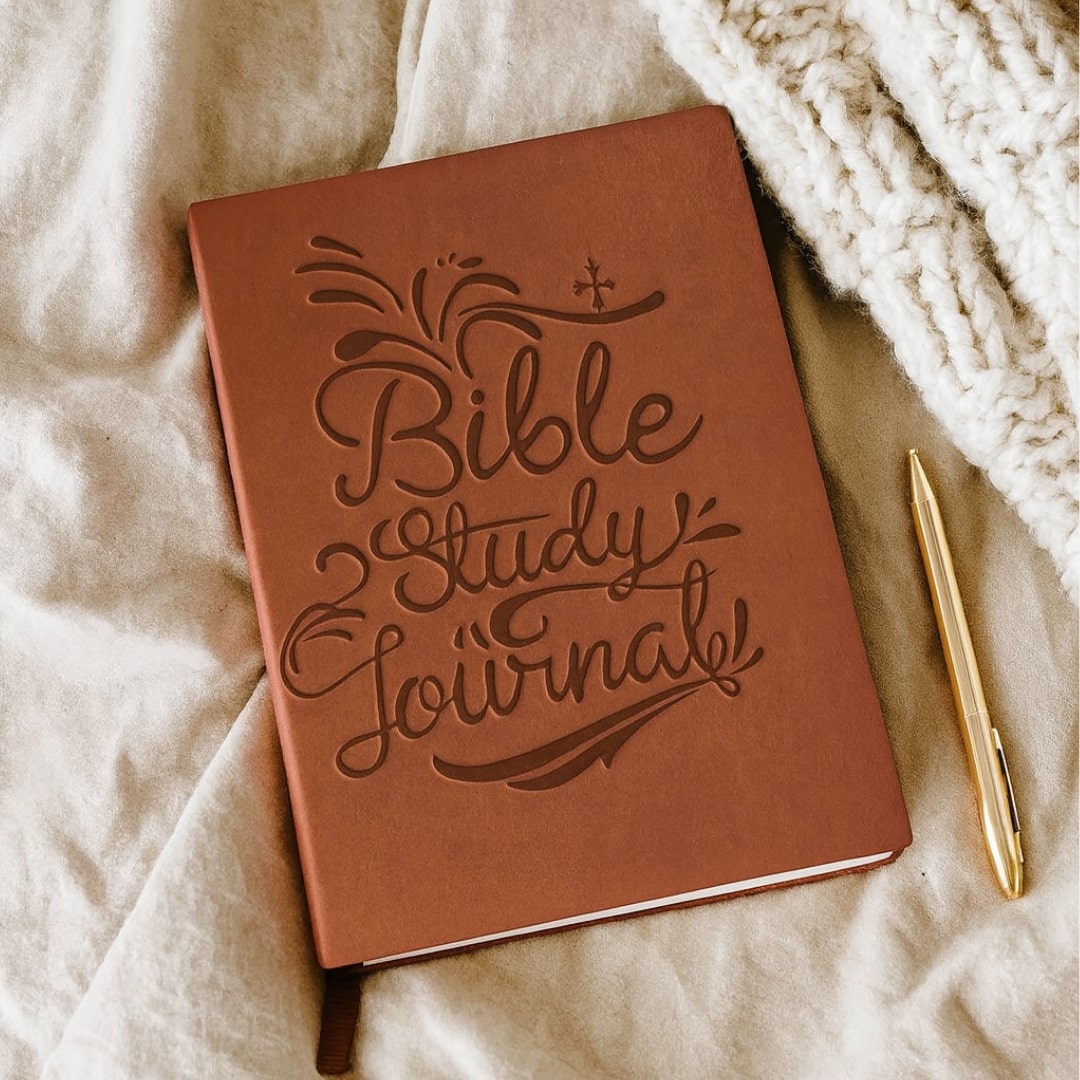 Bible
Study
Journal